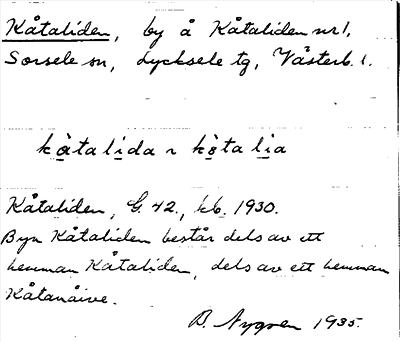 Kåtaliden, by å Kåtaliden nr 1,
Sorsele sn, Lycksele tg, Västerb. l.
kȧ̀talida ~ kȯ̀talia
Kåtaliden, G. 42., kb. 1930.
Byn Kåtaliden består dels av ett
hemman Kåtaliden, dels av ett hemman
Kåtanåive.
B. Nygren 1935.